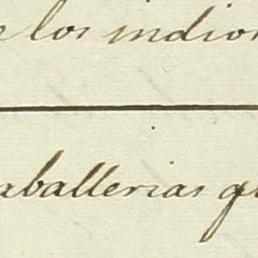 e los indios
aballerias qu